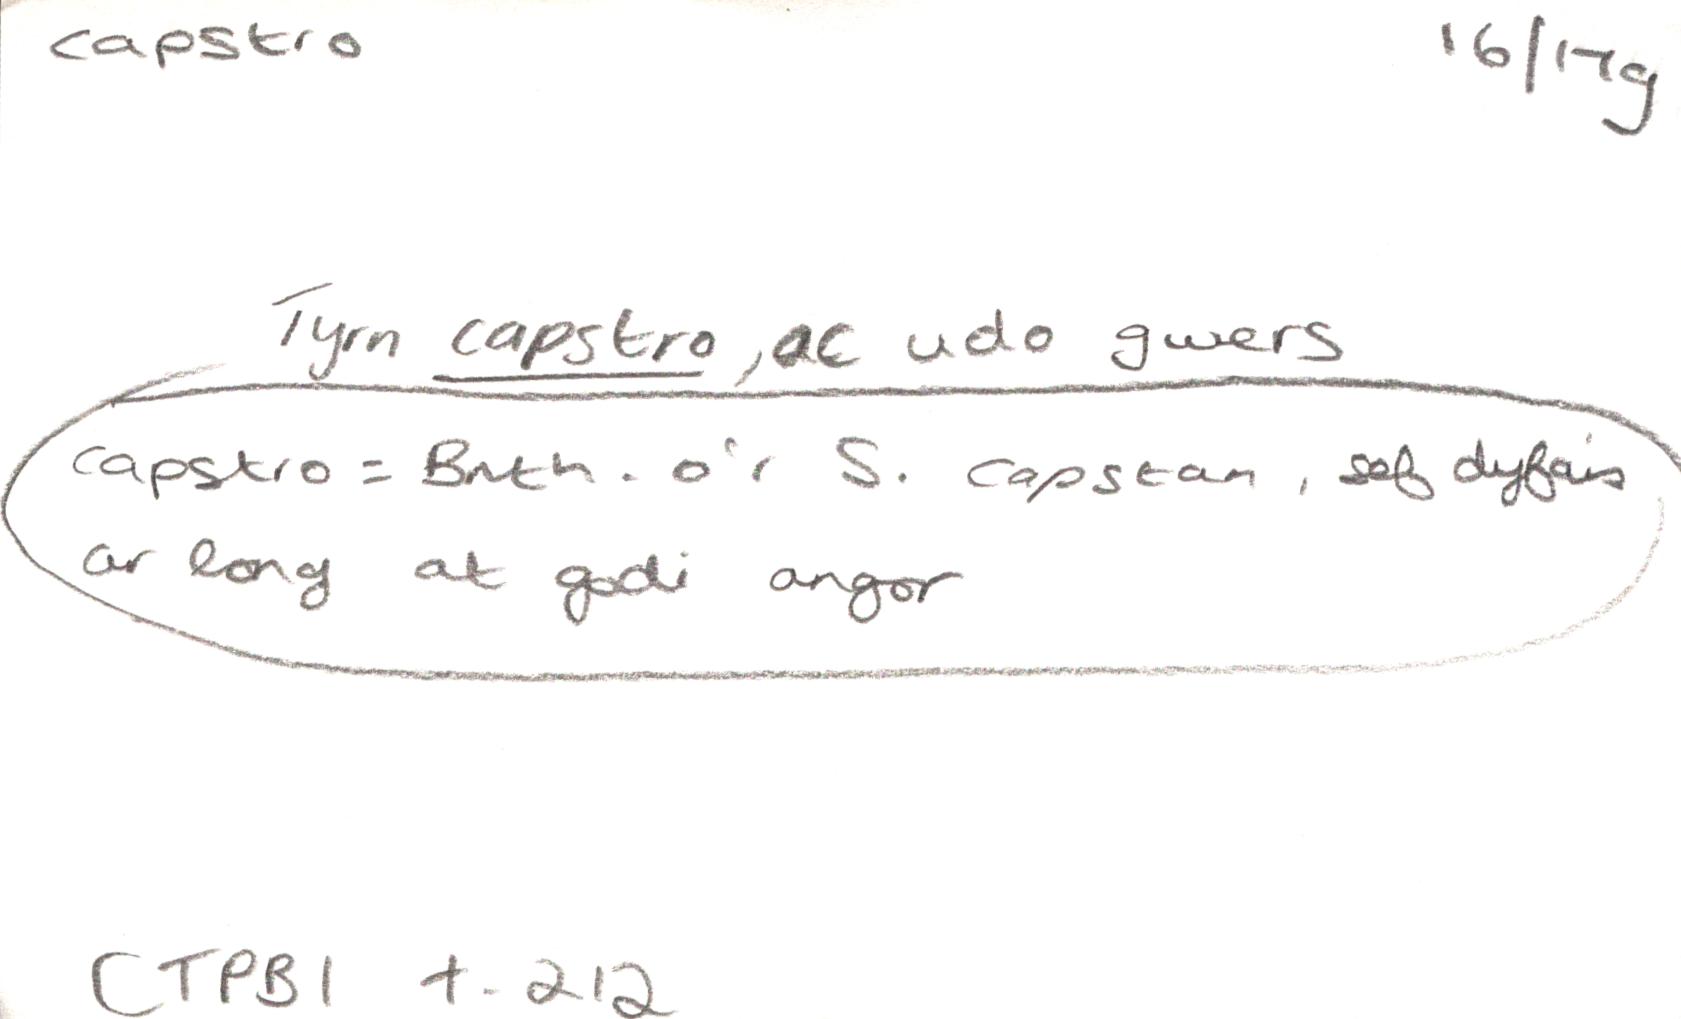 capstro 16/17g
Tyrn capstro, ac udo gwers
capstro = Bnth. o'r S. capstan, sef dyfais
ar long at godi angor
CTPB1 t. 212